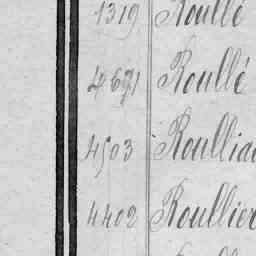 1319 Roullé
4671 Roullé
4503 Roulliac
4402 Roullier